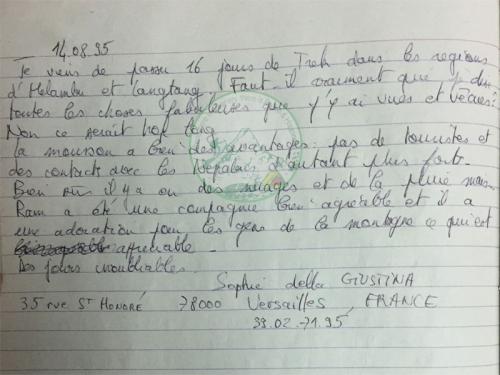 14.08.95
Je viens de passer 16 jours de Trek dans les regions
d'Helambu et Langtang. Faut-il vraiment que je dise
toutes les choses fabuleuses que j'y ai vues et vécues?
Non ce serait trop long
la mousson a bien des avantages: pas de touristes et
des contacts avec les Népalais d'autant plus forts.
Bien sûr il y a eu des nuages et de la pluie mais
Ram a été une compagnie bien agréable et il a
une adoration pour les gens de la montagne ce qui est
appréciable.
Des jours inoubliables.
Sophie della GIUSTINA
35 rue St HONORÉ 78000 Versailles, FRANCE
39.02.71.95